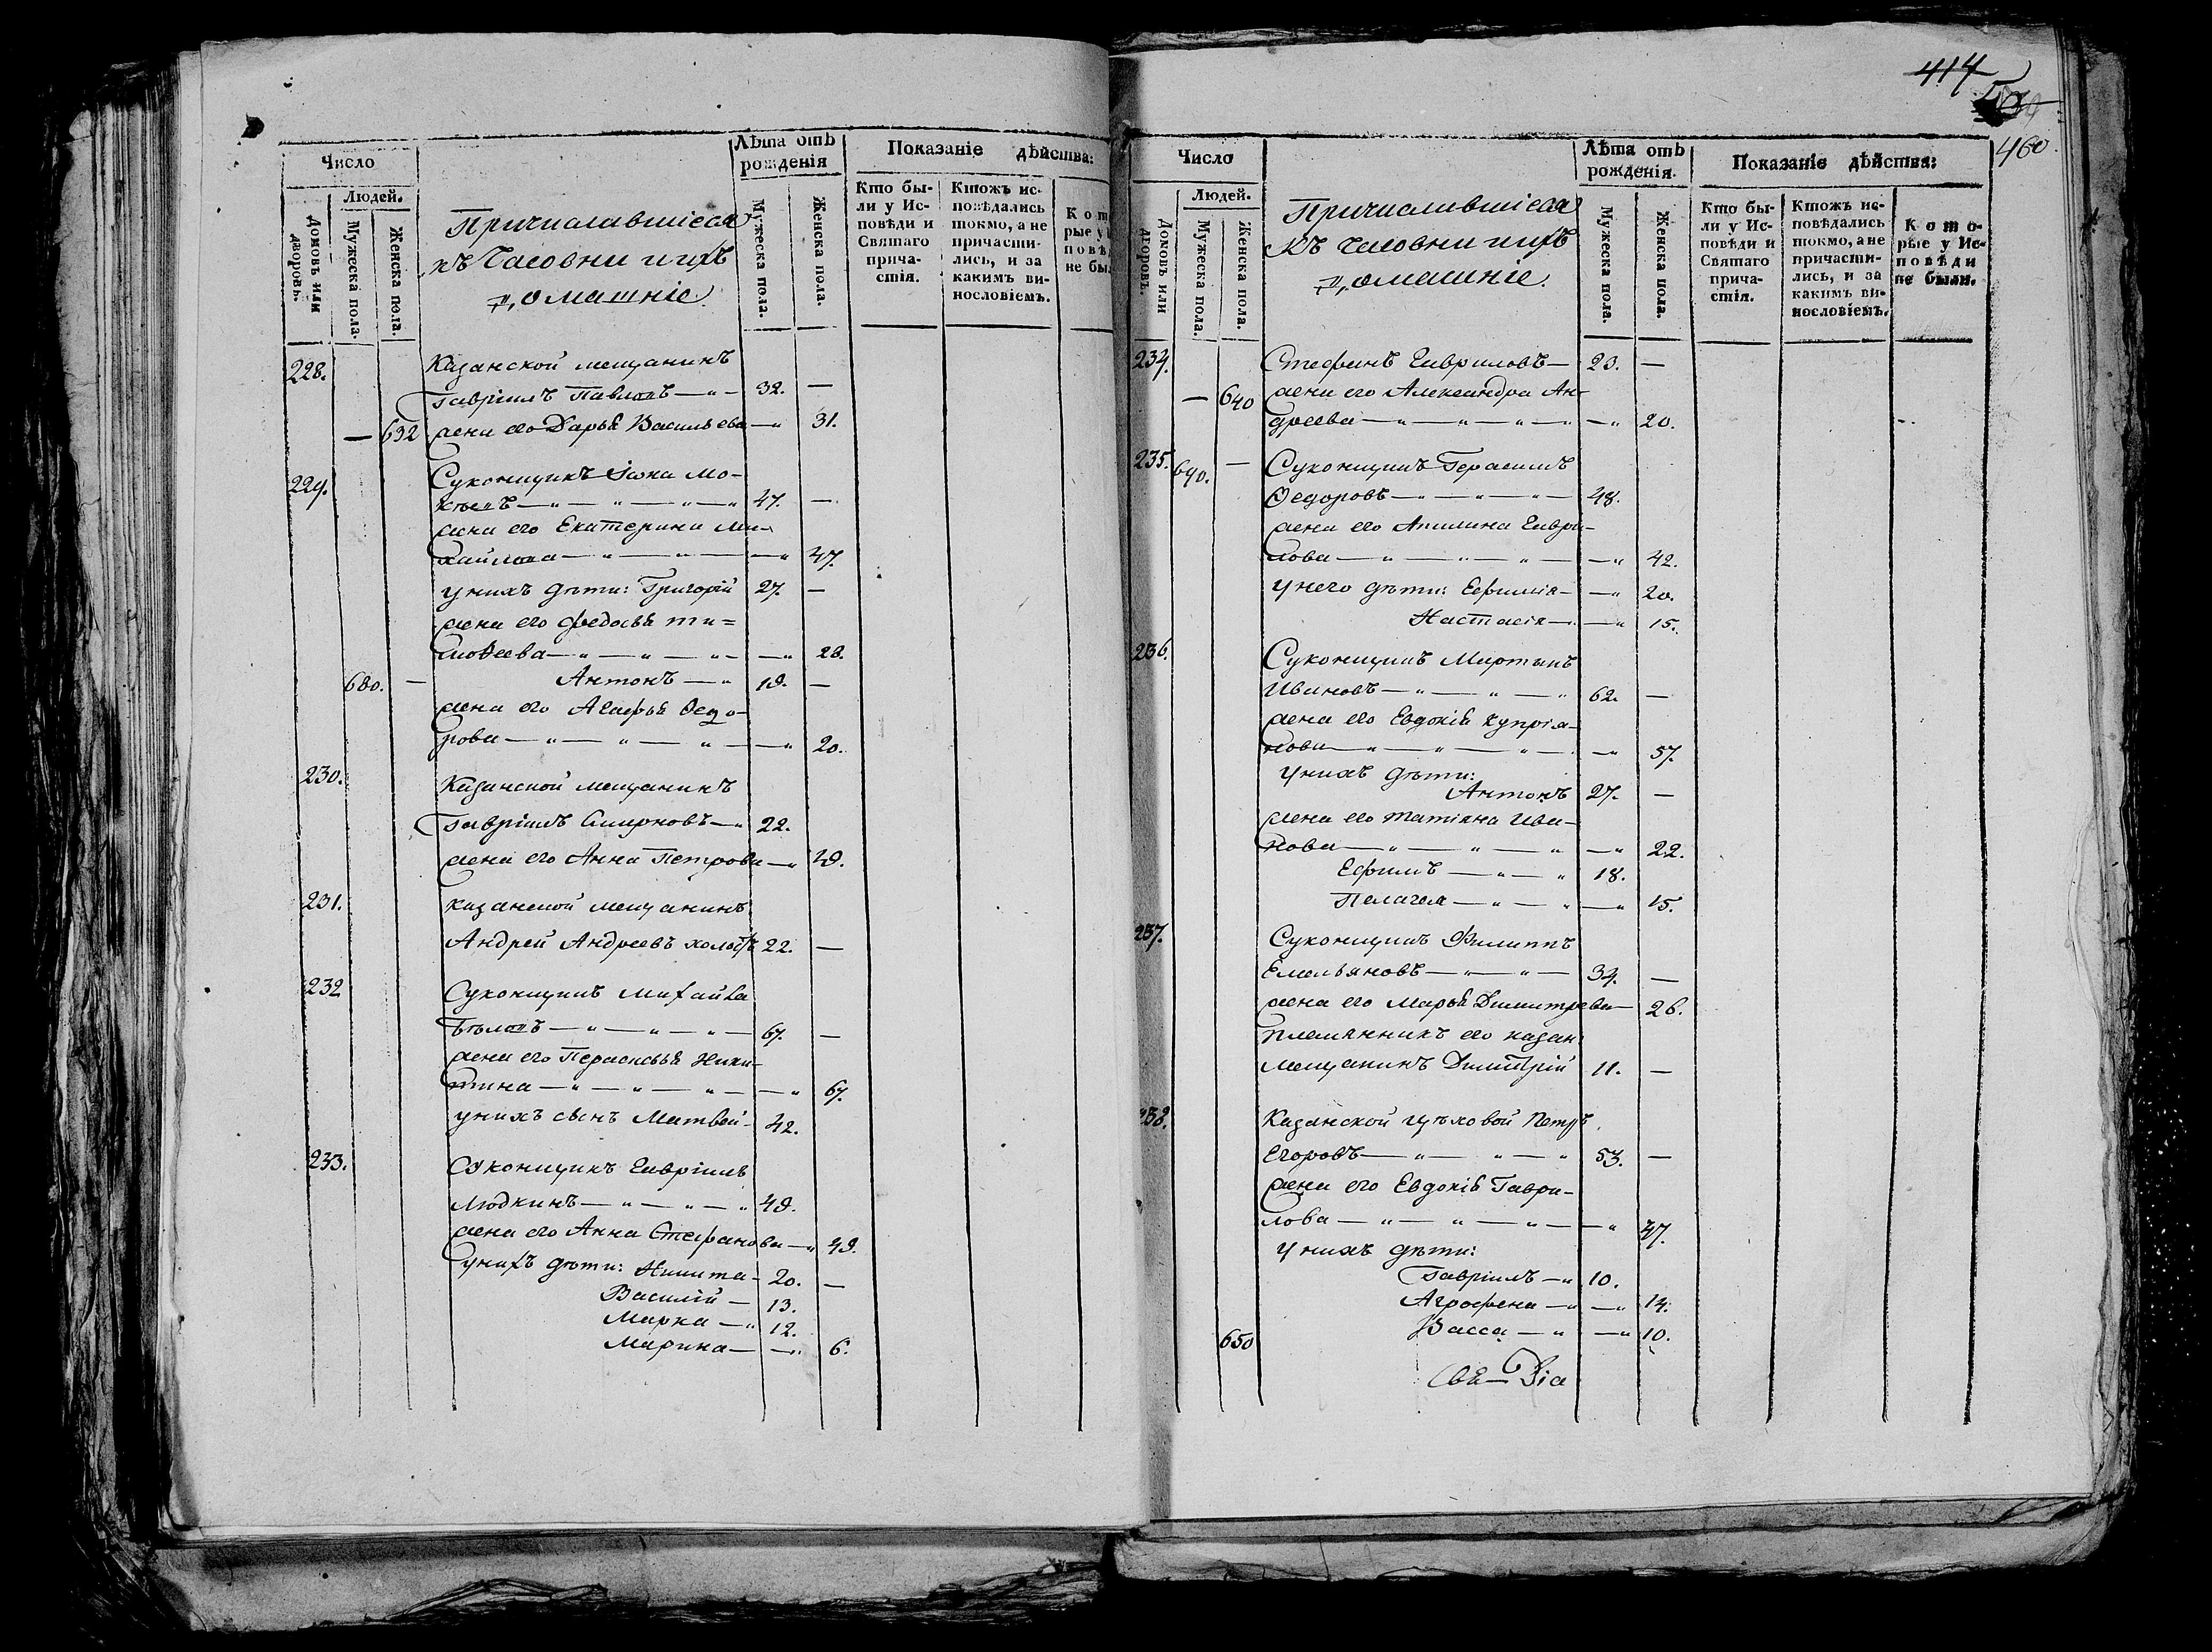 Число
Людей.
Домовъ или дворовъ.
Мужеска пола.
Женска пола.
Причислявшіеся
къ Часовни и ихъ
домашніе.
Лѣта отъ рожденія
Мужеска пола.
Женска пола.
Показаніе дѣйства:
Кто бы-
ли у Ис-
повѣди и
Святаго
прича-
стія.
Ктожъ ис-
повѣдались
токмо, а не
причасти-
лись, и за
какимъ ви-
нословіемъ.
228. Казанской мещанинъ
Гавріилъ Павловъ — „ — 32. —
— 632 жена его Дарья Васильева — „ 31.
229. Суконщикъ Іона Мо-
кѣевъ — „ — „ — „ — „ 47. —
жена его Екатерина Ми-
хайлова — „ — „ — — „ 47.
у нихъ дѣти: Григорій 27. —
жена его Федосья Ти=
моѳеева — „ — „ — „ — — „ 28.
680. — Антонъ — „ 19. —
жена его Агафья Ѳедо-
рова — „ — „ — „ — — „ 20.
230. Казанской мещанинъ
Гавріилъ Смирновъ — „ 22.
жена его Анна Петрова — „ 19.
231. Казанской мещанинъ
Андрей Андреевъ холостъ 22. —
232 Суконщикъ Михайла
Бѣловъ — „ — „ — „ — 67. —
жена его Парасковья Ники-
тина — „ — „ — „ — — „ 67.
у нихъ сынъ Матвей - 42.
233. Суконщикъ Гавріилъ
Людкинъ — „ — „ — „ 49.
жена его Анна Стефанова — „ 49.
у нихъ дѣти: Никита - 20. —
Василій — 13.
Марка — „ 12.
Марина — — „ 6.
414
460
Число
Людей.
Домовъ или дворовъ.
Мужеска пола.
Женска пола.
Причислившіеся
къ часовни и ихъ
домашніе.
Лѣта отъ рожденія.
Мужеска пола.
Женска пола.
Показаніе дѣйства:
Кто бы-
ли у Ис-
повѣди и
Святаго
прича-
стія.
Ктожъ ис-
повѣдались
токмо, а не
причасти-
лись, и за
какимъ ви-
нословіемъ.
Кото-
рые у Ис-
повѣди
не были.
234. Стефанъ Гавриловъ — 23. —
— 640 жена его Александра Ан-
дреева — „ — „ — „ — „ — „ 20.
235. 690. — Суконщикъ Герасимъ
Ѳедоровъ — „ — „ — „ — 48.
жена его Акилина Гаври-
лова — „ — „ — „ — — „ 42.
у него дѣти: Ефимія — — „ 20.
Настасія — — „ 15.
236. Суконщикъ Мартынъ
Ивановъ — „ — „ — „ 62. —
жена его Евдокія Купрія-
нова — „ — „ — „ — — „ 57.
у нихъ дѣти:
Антонъ 27. —
жена его Татіяна Ива-
нова — „ — „ — „ — „ 22.
Ефимъ — „ — „ 18.
Пелагея — „ — „ — „ 15.
237. Суконщикъ Филиппъ
Емельяновъ — „ — „ — 34. —
жена его Марья Димитрева — 26.
племянникъ его казан
мещанинъ Димитрій 11. —
238. Казанской цѣховой Петръ
Егоровъ — „ — „ — „ 53. —
жена его Евдокія Гаври-
лова — „ — „ — „ — — „ 47.
у нихъ дѣти:
Гавріилъ — „ 10.
Агрофена — „ — „ 14.
650 Васса — „ — „ 10.